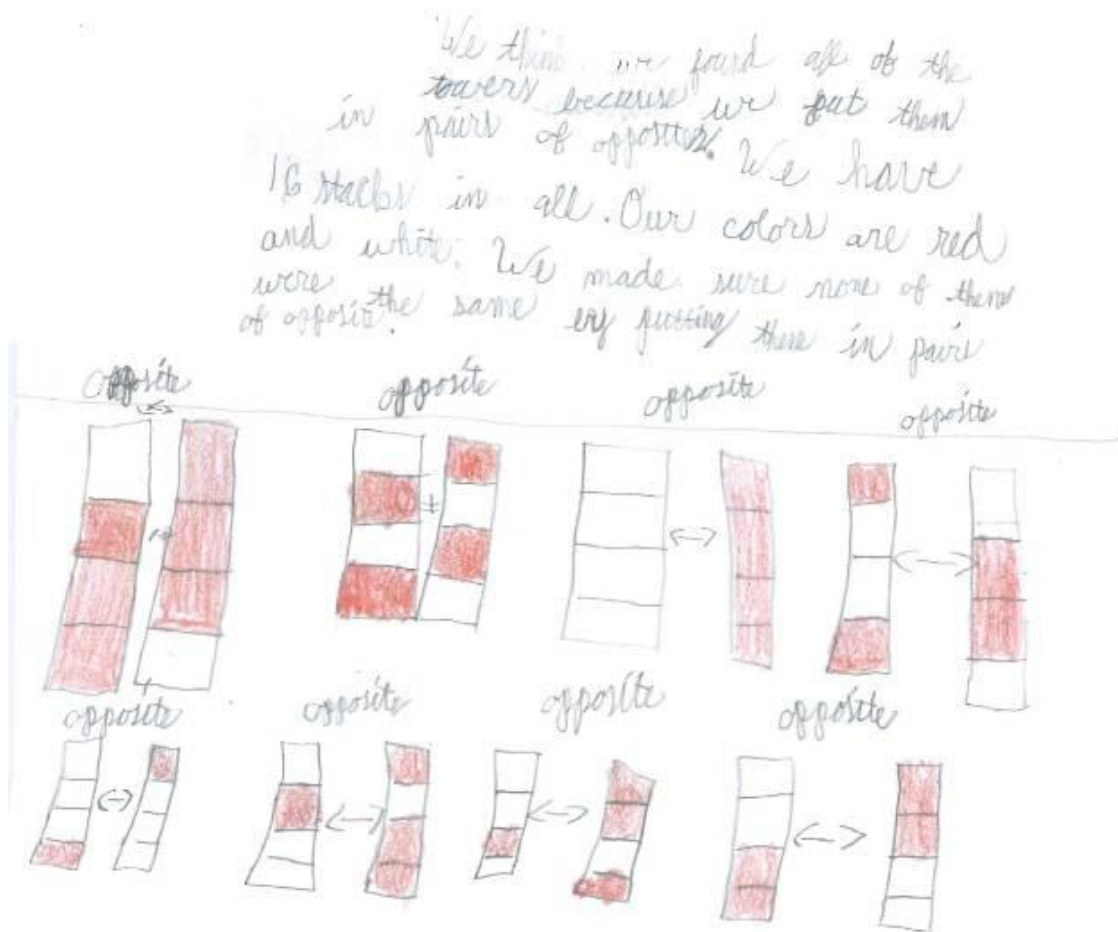 We think we found all of the
towers because we put them
in pairs of opposites. We have
16 stacks in all. Our colors are red
and white. We made sure none of them
were the same by putting them in pairs
of opposite.
opposite opposite opposite opposite
opposite opposite opposite opposite